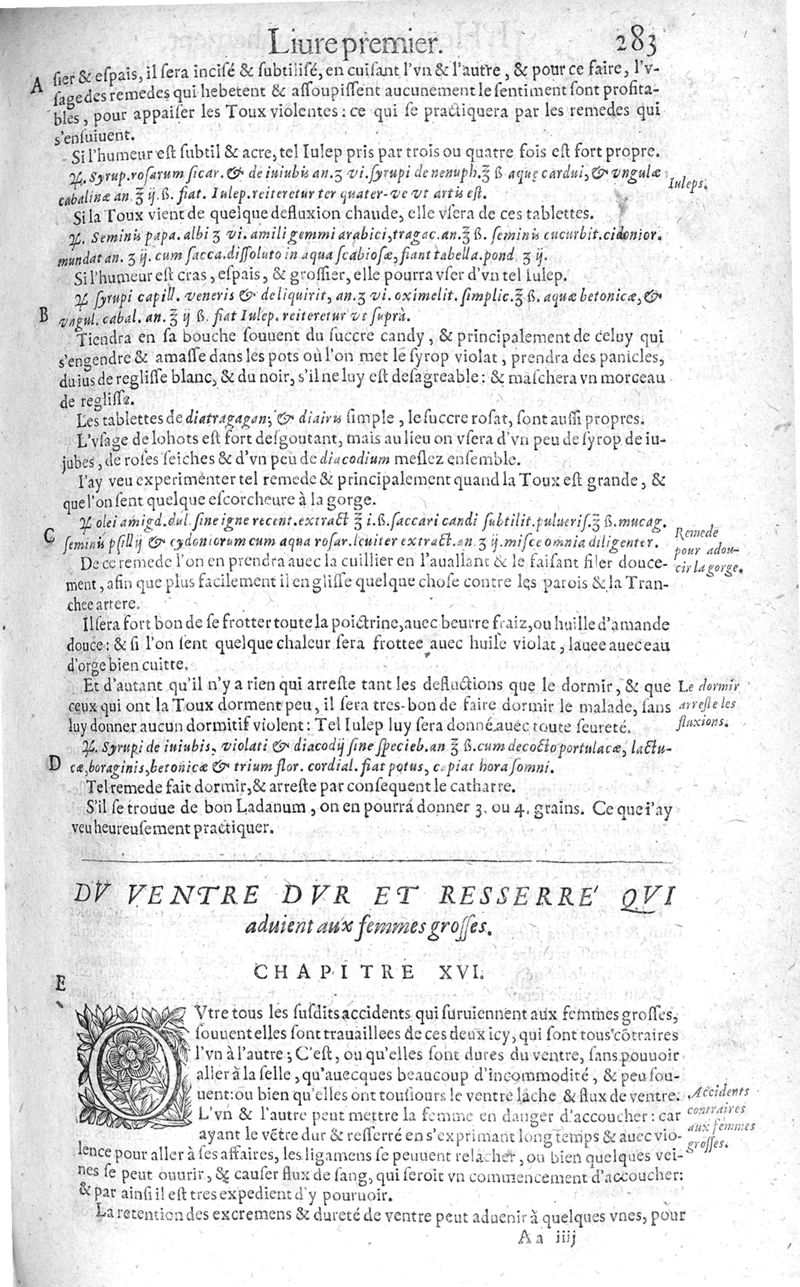 Liure premier. 283
A ſier & eſpais, il ſera inciſé & ſubtiliſé, en cuiſant l'vn & l'autre, & pour ce faire, l'v-
ſage des remedes qui hebetent & aſſoupiſſent aucunement le ſentiment ſont profita-
bles, pour appaiſer les Toux violentes: ce qui ſe practiquera par les remedes qui
s'enſuiuent.
Si l'humeur eſt ſubtil & acre, tel Iulep pris par trois ou quatre fois eſt fort propre.
℞. Syrup.roſarum ſicar. & de iuiubis an.ʒ vi.ſyrupi de nenuph.℥ ß aque cardui, & vngulæ
cabalinæ an. ℥ ij. ß. fiat. Iulep.reiteretur ter quater-ve vt artis eſt.
Iuleps.
Si la Toux vient de quelque defluxion chaude, elle vſera de ces tablettes.
℞. Seminis papa.albi ʒ vi. amili gemmi arabici, tragac. an.℥ ß. ſeminis cucurbit.cidonior.
mundat an. ʒ ij. cum ſacca.diſſoluto in aqua ſcabioſæ, fiant tabella.pond. ʒ ij.
Si l'humeur eſt cras, eſpais, & groſſier, elle pourra vſer d'vn tel Iulep.
℞ ſyrupi capill. veneris & de liquirit, an.ʒ vi. oximelit. ſimplic.℥ ß. aquæ betonicæ, &
B vngul. cabal. an. ℥ ij ß. fiat Iulep. reiteretur vt ſupra.
Tiendra en ſa bouche ſouuent du ſuccre candy, & principalement de celuy qui
s'engendre & amaſſe dans les pots où l'on met le ſyrop violat, prendra des panicles,
du ius de regliſſe blanc, & du noir, s'il ne luy eſt deſagreable: & maſchera vn morceau
de regliſſe.
Les tablettes de diatragagan; & diairis ſimple, le ſuccre roſat, ſont auſſi propres.
L'vſage de lohots eſt fort deſgoutant, mais au lieu on vſera d'vn peu de ſyrop de iu-
jubes, de roſes ſeiches & d'vn peu de diacodium meſlez enſemble.
I'ay veu experimenter tel remede & principalement quand la Toux eſt grande, &
que l'on ſent quelque eſcorcheure à la gorge.
℞ olei amigd.dul. ſine igne recent.extract ℥ i.ß.ſaccari candi ſubtilit.pulueriſ.℥ ß. mucag.
C ſeminis pſillij & cydoniorum cum aqua roſar.leuiter extract.an. ʒ ij.miſce omnia diligenter.
Remede
pour adou-
cir la gorge.
De ce remede l'on en prendra auec la cuillier en l'auallant & le faiſant filer douce-
ment, afin que plus facilement il en gliſſe quelque choſe contre les parois & la Tran-
chee artere.
Il ſera fort bon de ſe frotter toute la poictrine, auec beurre fraiz, ou huille d'amande
douce: & ſi l'on ſent quelque chaleur ſera frottee auec huile violat, lauee auec eau
d'orge bien cuitte.
Et d'autant qu'il n'y a rien qui arreſte tant les defluctions que le dormir, & que
ceux qui ont la Toux dorment peu, il ſera tres-bon de faire dormir le malade, ſans
luy donner aucun dormitif violent: Tel Iulep luy ſera donné auec toute ſeureté.
Le dormir
arreſte les
fluxions.
℞. Syrupi de iuiubis, violati & diacodij ſine ſpecieb.an ℥ ß.cum decocto portulacæ, lactu-
D cæ, boraginis, betonicæ & trium flor. cordial. fiat potus, capiat hora ſomni.
Tel remede fait dormir, & arreſte par conſequent le catharre.
S'il ſe trouue de bon Ladanum, on en pourra donner 3. ou 4. grains. Ce que i'ay
veu heureuſement practiquer.
DV VENTRE DVR ET RESSERRE' QVI
aduient aux femmes groſſes.
CHAPITRE XVI.
E
OVtre tous les ſuſdits accidents qui ſuruiennent aux femmes groſſes,
ſouuent elles ſont trauaillees de ces deux icy, qui ſont tous cõtraires
l'vn à l'autre; C'eſt, ou qu'elles ſont dures du ventre, ſans pouuoir
aller à la ſelle, qu'auecques beaucoup d'incommodité, & peu ſou-
uent: ou bien qu'elles ont touſiours le ventre lâche & flux de ventre.
L'vn & l'autre peut mettre la femme en danger d'accoucher: car
ayant le vẽtre dur & reſſerré en s'exprimant long temps & auec vio-
Accidents
contraires
aux femmes
groſſes.
lence pour aller à ſes affaires, les ligamens ſe peuuent relacher, ou bien quelques vei-
nes ſe peut ouurir, & cauſer flux de ſang, qui ſeroit vn commencement d'accoucher:
& par ainſi il eſt tres expedient d'y pouruoir.
La retention des excremens & dureté de ventre peut aduenir à quelques vnes, pour
Aa iiij